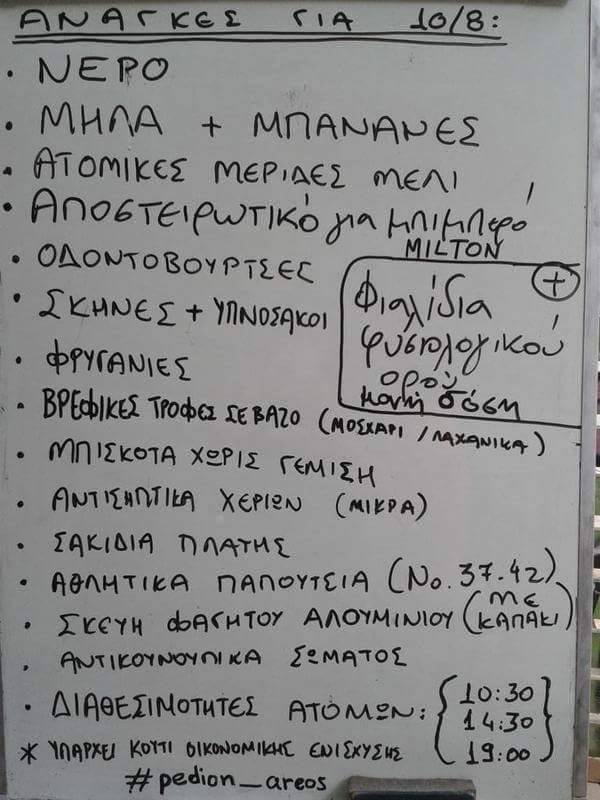 ΑΝΑΓΚΕΣ ΓΙΑ 10/8:
• ΝΕΡΟ
• ΜΗΛΑ + ΜΠΑΝΑΝΕΣ
• ΑΤΟΜΙΚΕΣ ΜΕΡΙΔΕΣ ΜΕΛΙ
• ΑΠΟΣΤΕΙΡΩΤΙΚΌ για μπιμπερό
MILTON
• ΟΔΟΝΤΟΒΟΥΡΤΣΕΣ
• ΣΚΗΝΕΣ + ΥΠΝΟΣΑΚΟΙ
+
Φιαλίδια
φυσιολογικού
ορού
μονή δόση
• ΦΡΥΓΑΝΙΕΣ
• ΒΡΕΦΙΚΕΣ ΤΡΟΦΕΣ ΣΕ ΒΑΖΟ (ΜΟΣΧΑΡΙ / ΛΑΧΑΝΙΚΑ)
• ΜΠΙΣΚΟΤΑ ΧΩΡΙΣ ΓΕΜΙΣΗ
• ΑΝΤΙΣΗΠΤΙΚΑ ΧΕΡΙΩΝ (ΜΙΚΡΑ)
• ΣΑΚΙΔΙΑ ΠΛΑΤΗΣ
• ΑΘΛΗΤΙΚΑ ΠΑΠΟΥΤΣΙΑ (Νο. 37-42)
• ΣΚΕΥΗ ΦΑΓΗΤΟΥ ΑΛΟΥΜΙΝΙΟΥ (ΜΕ ΚΑΠΑΚΙ)
. ΑΝΤΙΚΟΥΝΟΥΠΙΚΑ ΣΩΜΑΤΟΣ
• ΔΙΑΘΕΣΙΜΟΤΗΤΕΣ ΑΤΟΜΩΝ: {10:30
14:30
19:00}
* ΥΠΑΡΧΕΙ ΚΟΥΤΙ ΟΙΚΟΝΟΜΙΚΗΣ ΕΝΙΣΧΥΣΗΣ
#pedion_areos